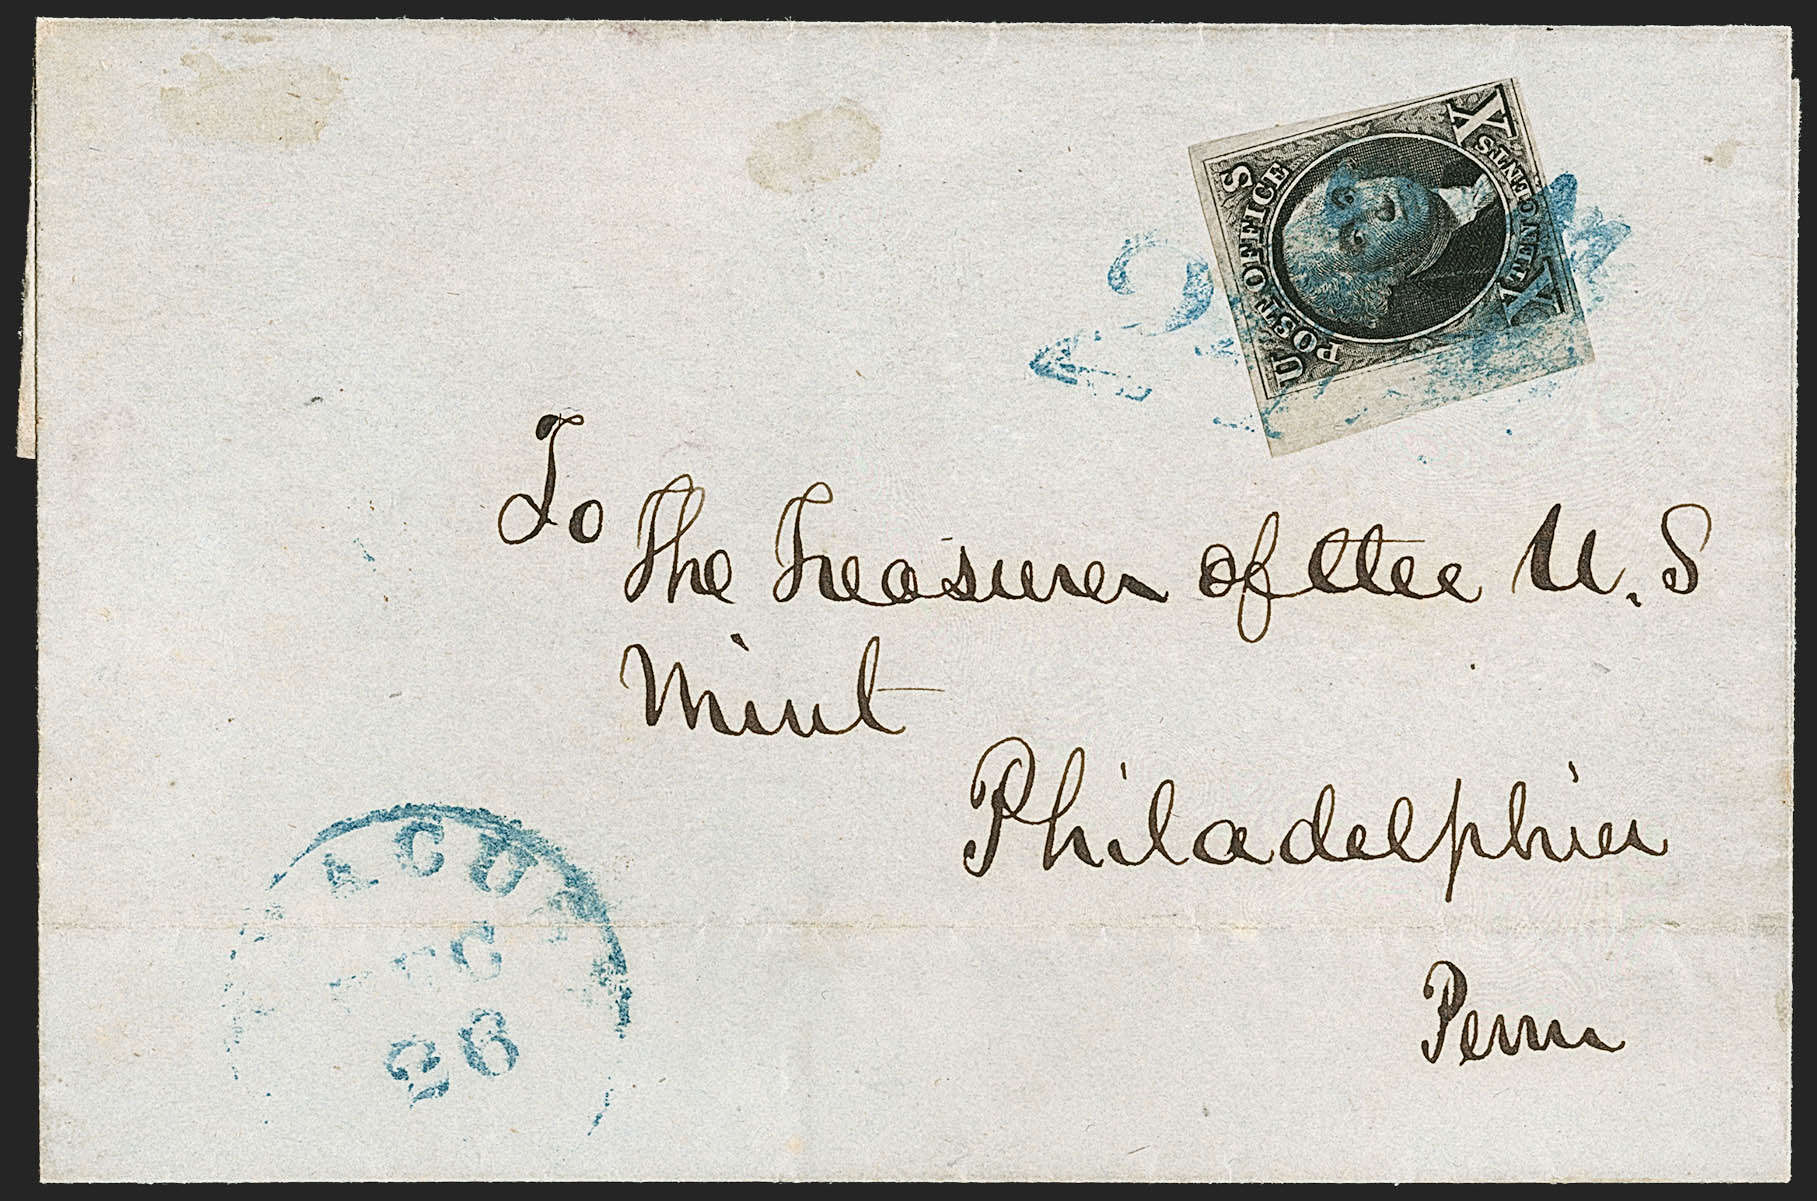 U S
POST OFFICE
X TEN CENTS X
To
The Treasurer of the U.S
Mint
Philadelphia
Penn
ACU
26